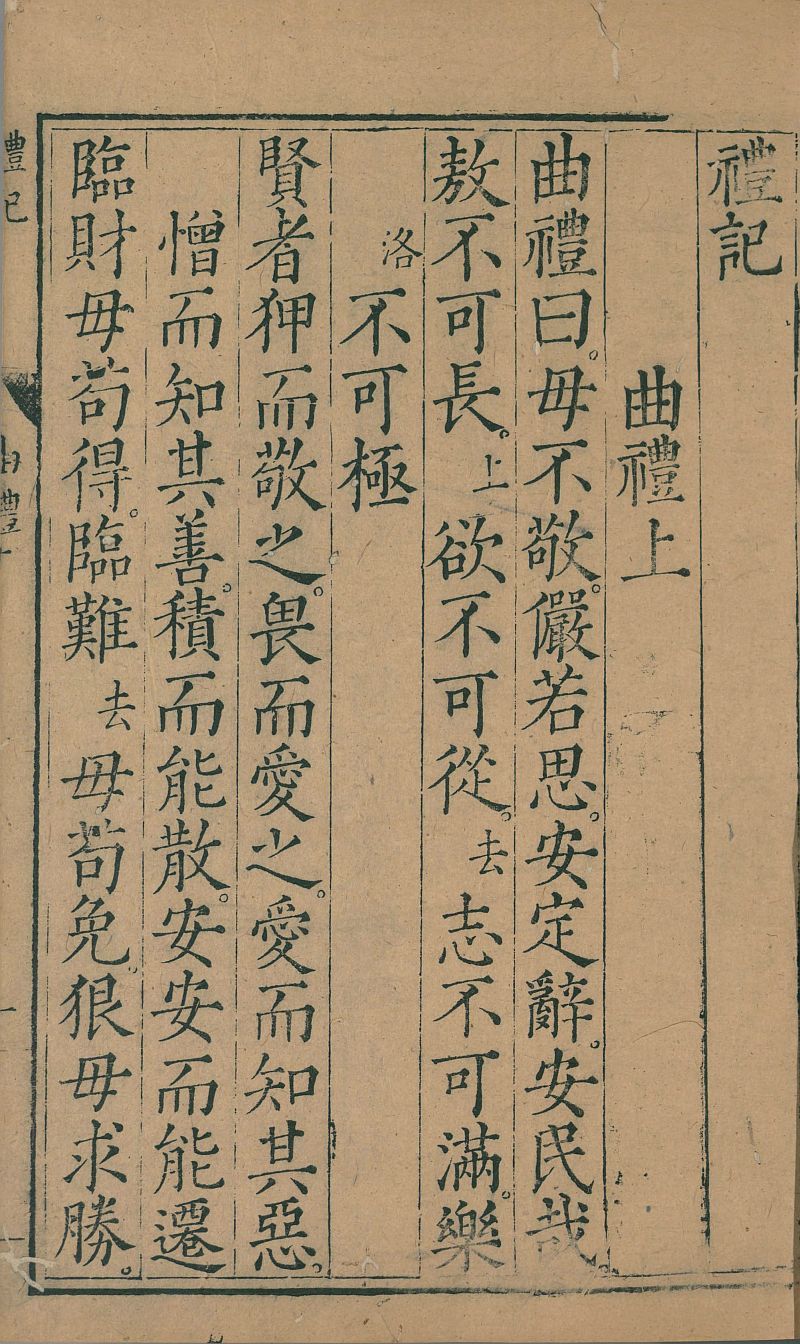 禮記
曲禮上
曲禮曰。毋不敬。儼若思。安定辭。安民哉。
敖不可長。上欲不可從。去志不可滿。樂
洛不可極
賢者狎而敬之。畏而愛之。愛而知其惡。
憎而知其善。積而能散。安安而能遷
臨財毋苟得。臨難去毋苟免。狠毋求勝。
禮記
曲禮上